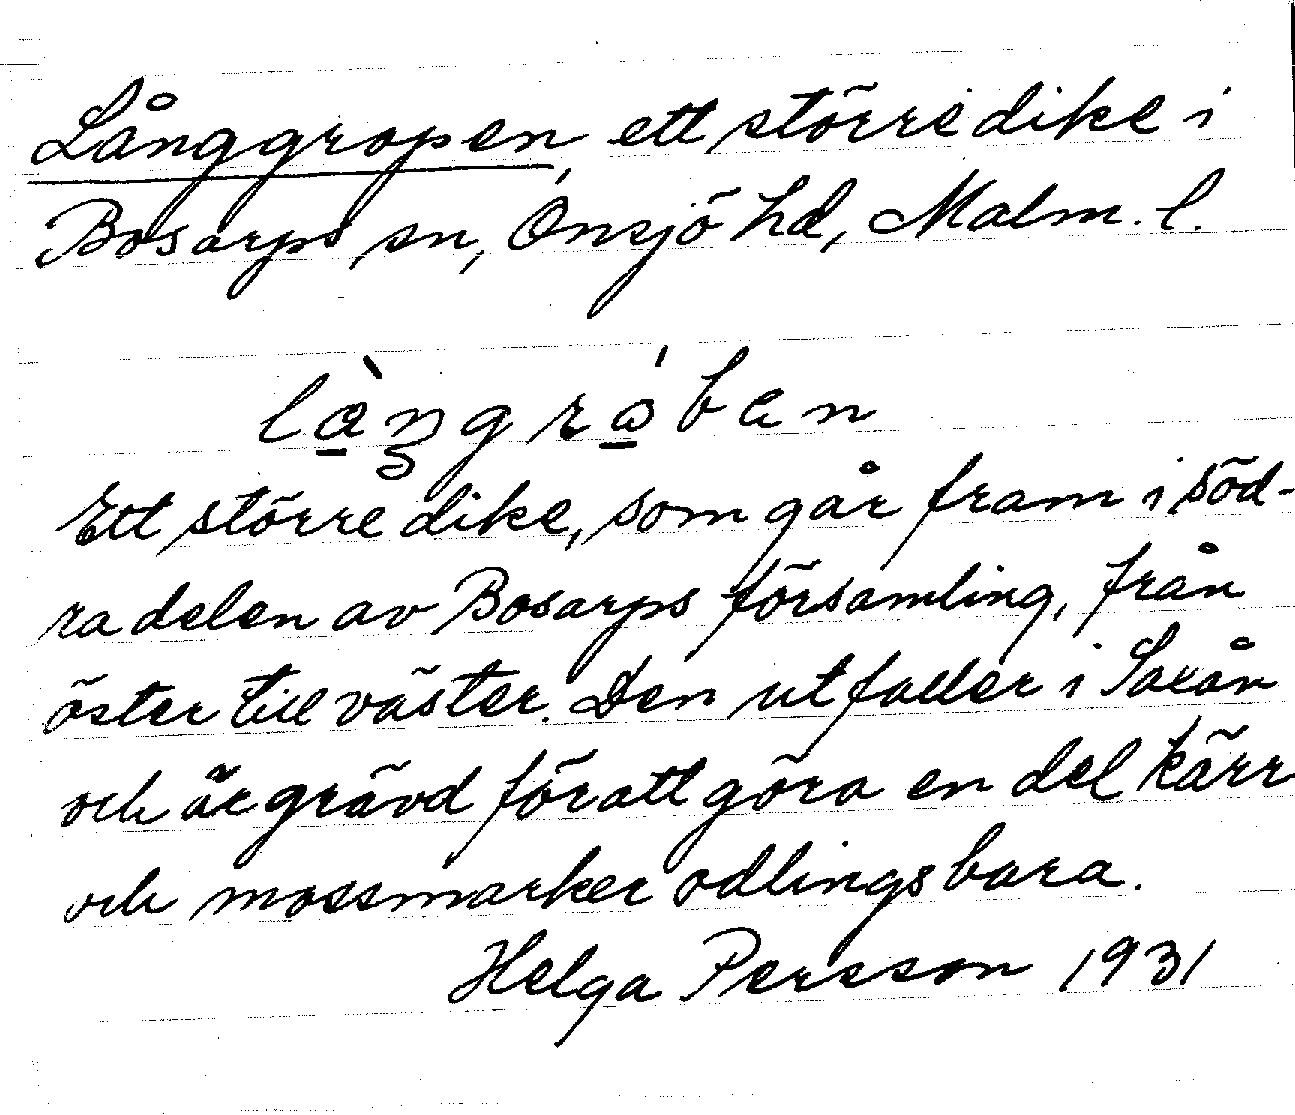 Långgropen, ett större dike i
Bosarps sn, Onsjö hd, Malm. l.
là̱ŋgrá̱ben
Ett större dike, som går fram i söd-
ra delen av Bosarps församling, från
öster till väster. Den utfaller i Saxån
och är grävd föratt göra en del kärr
och mossmarker odlingsbara.
Helga Persson 1931